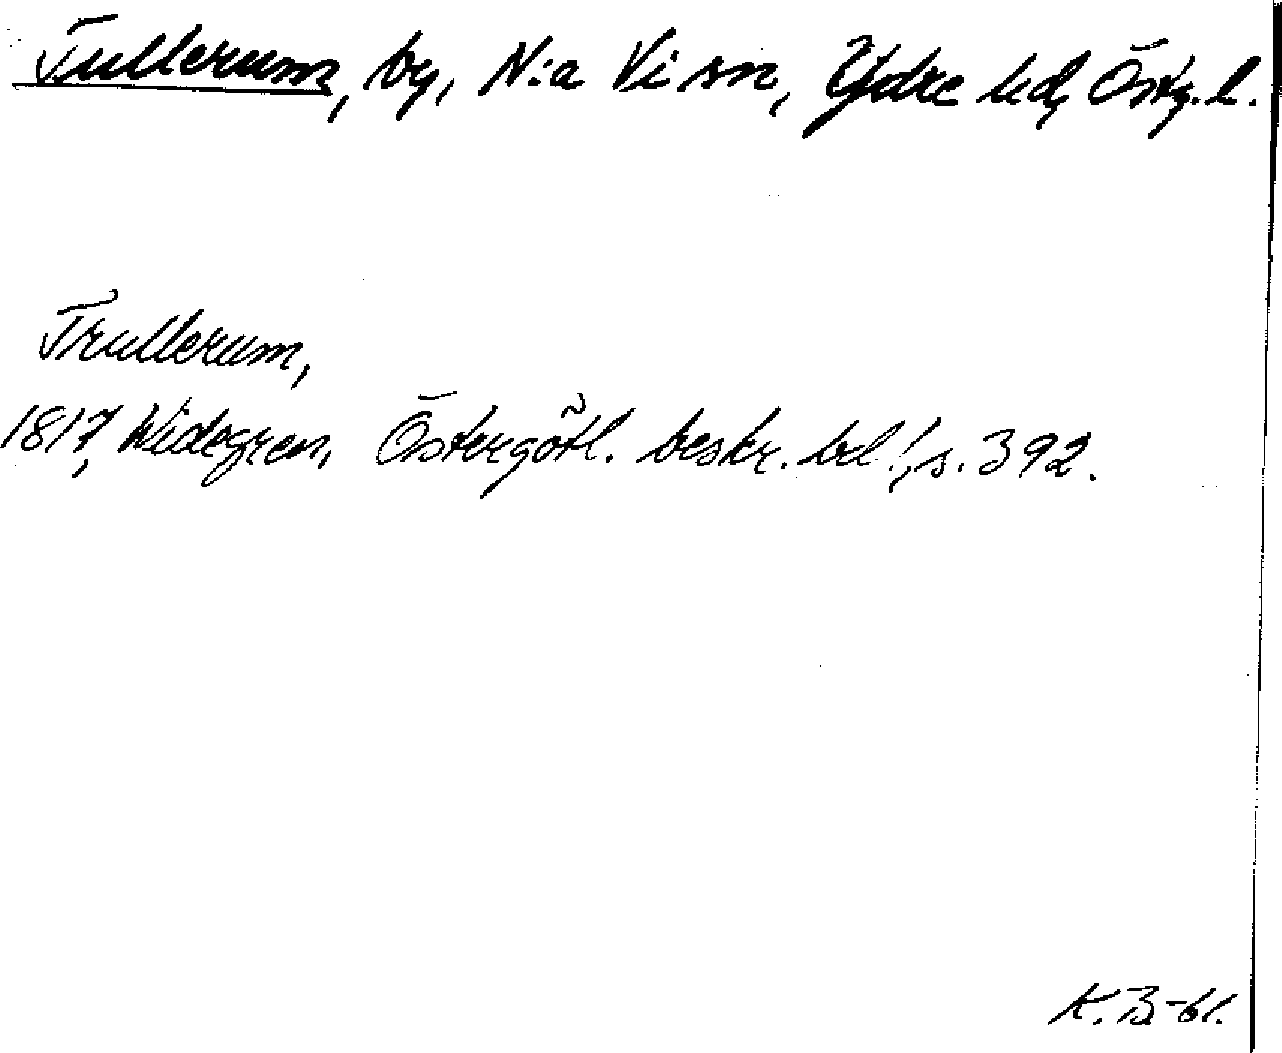 Tullerum, by, N:a Vi sn, Ydre hd, Östg. l.
Trullerum,
1817, Widegren, Östergötl. beskr. bd 1, s. 392.
K. B-61.